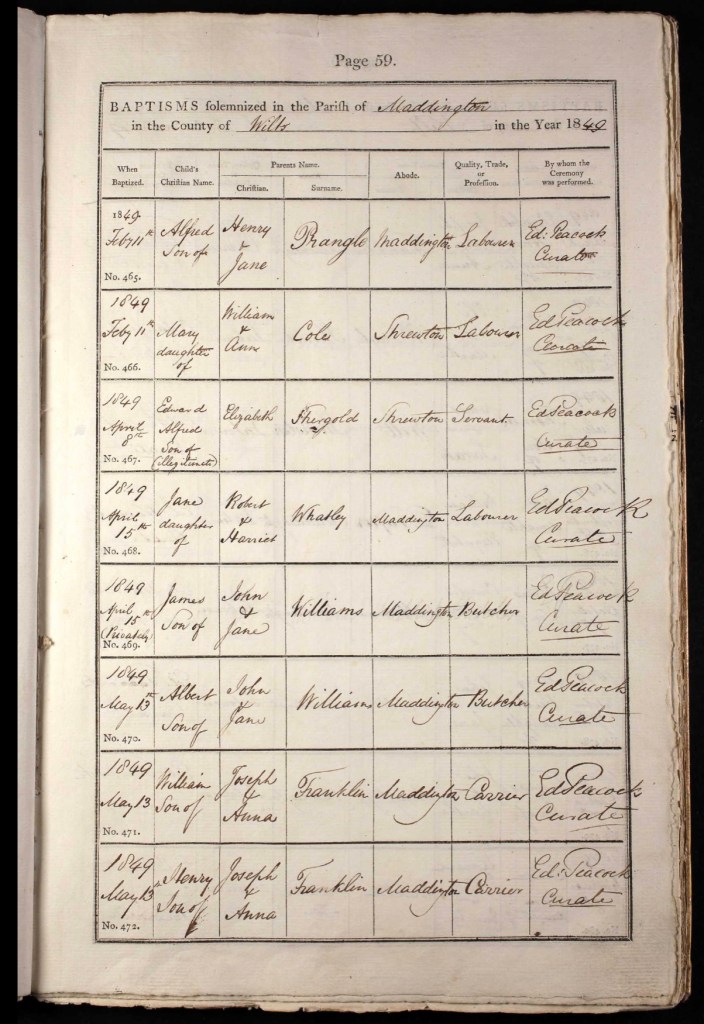 Page 59.
BAPTISMS solemnized in the Parish of Maddington
in the County of Wilts in the Year 1849
When Baptized. Child's Christian Name. Parents Name. Abode. Quality, Trade, or Profession. By whom the Ceremony was performed.
Christian. Surname.
1849 Feby 11th No. 465. Alfred Son of Henry & Jane Prangle Maddington Labourer Ed: Peacock Curate
1849 Feby 11th No. 466. Mary daughter of William & Ann Cole Shrewton Labourer Ed Peacock Curate
1849 April 8th No. 467. Edward Alfred Son of (illegitimate) Elizabeth Shergold Shrewton Servant. Ed Peacock Curate
1849 April 15th No. 468. Jane daughter of Robert & Harriet Whatley Maddington Labourer Ed Peacock Curate
1849 April 15th (Privately) No. 469. James Son of John & Jane Williams Maddington Butcher Ed Peacock Curate
1849 May 13th No. 470. Albert Son of John & Jane Williams Maddington Butcher Ed Peacock Curate
1849 May 13 No. 471. William Son of Joseph & Anna Franklin Maddington Carrier Ed Peacock Curate
1849 May 13 No. 472. Henry Son of Joseph & Anna Franklin Maddington Carrier Ed: Peacock Curate